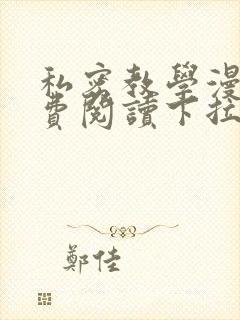 私密教學漫
費閱讀下拉
鄭佳